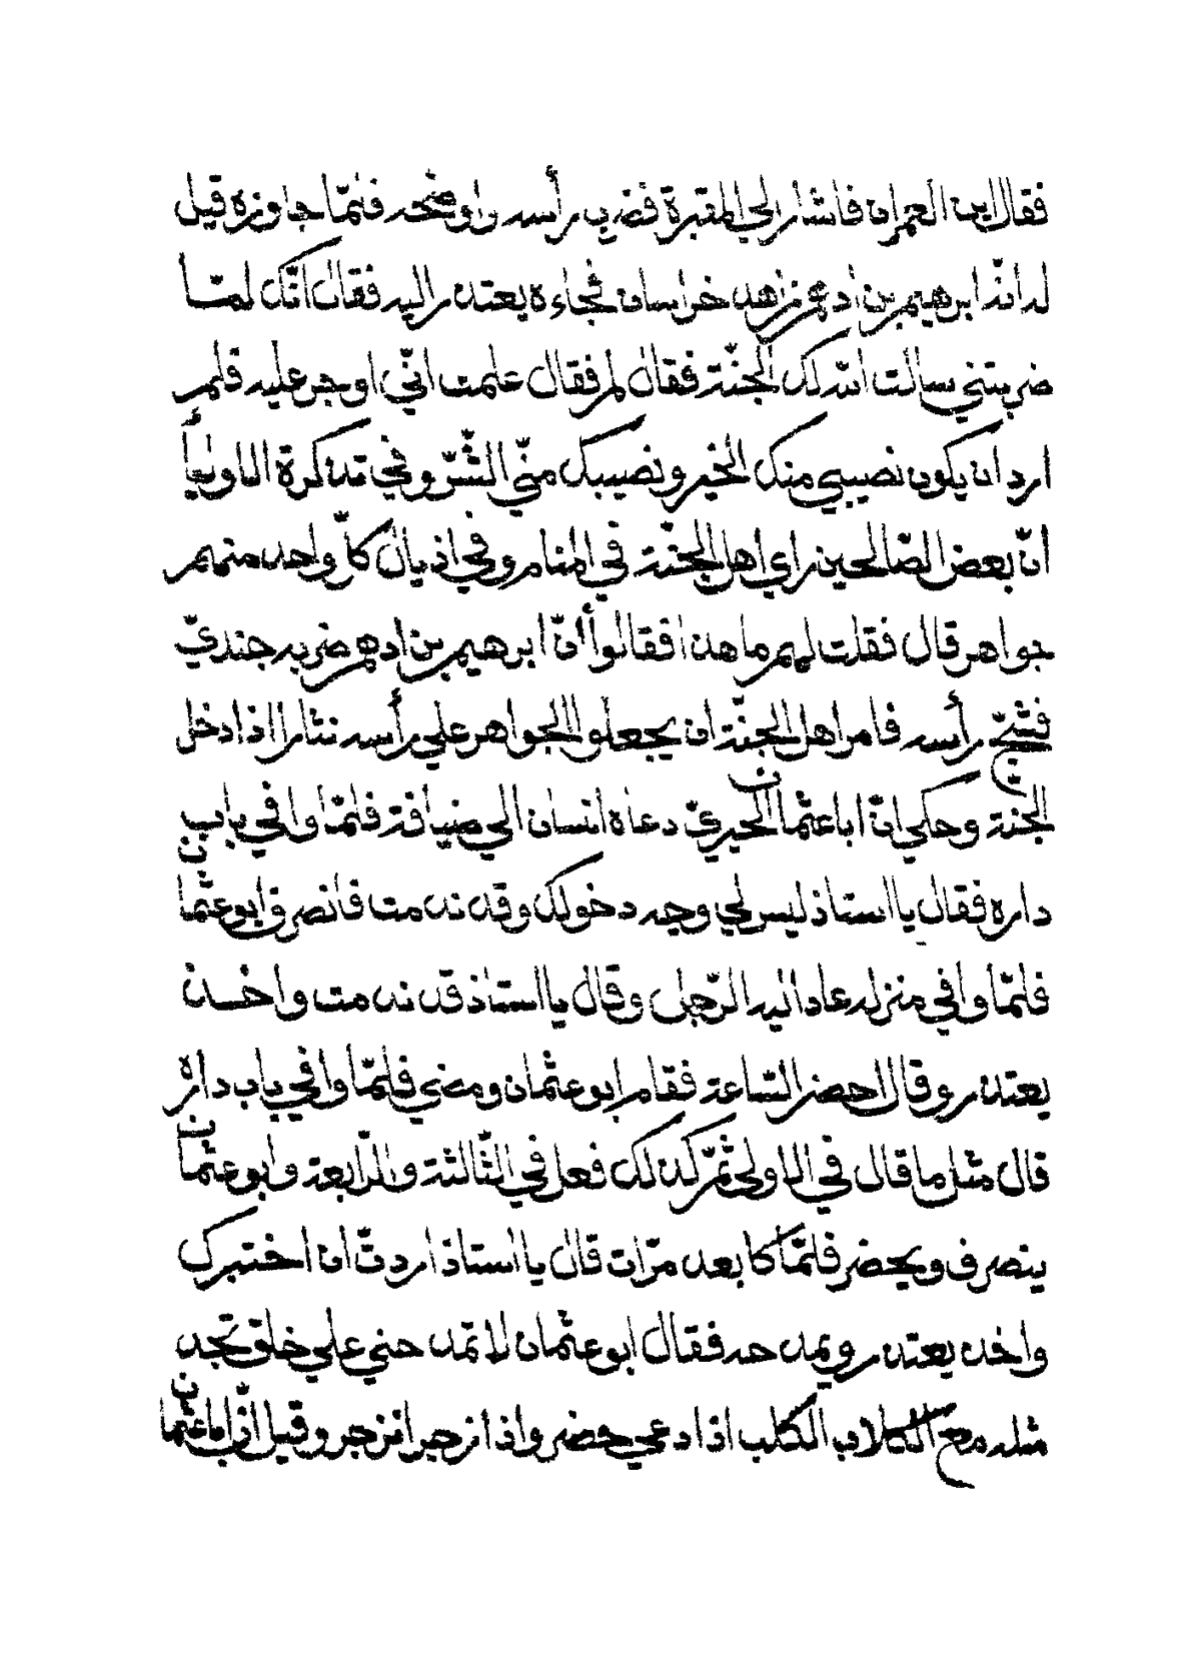 فقال اين العمران فاشار الي المقبرة فضرب رأسه واوضحه فلمّا جاوزه قيل
له انّه ابرهيم بن ادهم زاهد خراسان فجاءه يعتذر اليه فقال انّك لمّا
ضربتني سالت الله لك الجنّة فقال لم فقال علمت انّي اوجر عليه فلم
ارد ان يكون نصيبي منك الخير ونصيبك منّي الشّرّ وفي تذكرة الاولياء
انّ بعض الصّالحين راي اهل الجنّة في المنام وفي اذيال كلّ واحد منهم
جواهر قال فقلت لهم ما هذا فقالوا انّ ابرهيم بن ادهم ضربه جنديّ
فشجّ رأسه فامر اهل الجنّة ان يجعلوا الجواهر علي رأسه نثارا اذا دخل
الجنة وحكي انّ ابا عثمان الحيريّ دعاه انسان الي ضيافة فلمّا وافي باب
داره فقال يا استاذ ليس لي وجه دخولك وقد ندمت فانصرف ابو عثمان
فلمّا وافي منزله عاد اليه الرّجل وقال يا استاذ قد ندمت واخذ
يعتذر وقال احضر السّاعة فقام ابو عثمان ومضي فلمّا وافي باب داره
قال مثل ما قال في الاولي ثمّ كذلك فعل في الثّالثة والرّابعة وابو عثمان
ينصرف ويحضر فلمّا كا بعد مرّات قال يا استاذ اردتّ ان اختبرك
واخذ يعتذر ويمدحه فقال ابو عثمان لا تمدحني علي خلق تجد
مثله مع الكلاب الكلب اذا دعي حضر واذا زجر انزجر وقيل انّ ابا عثمان